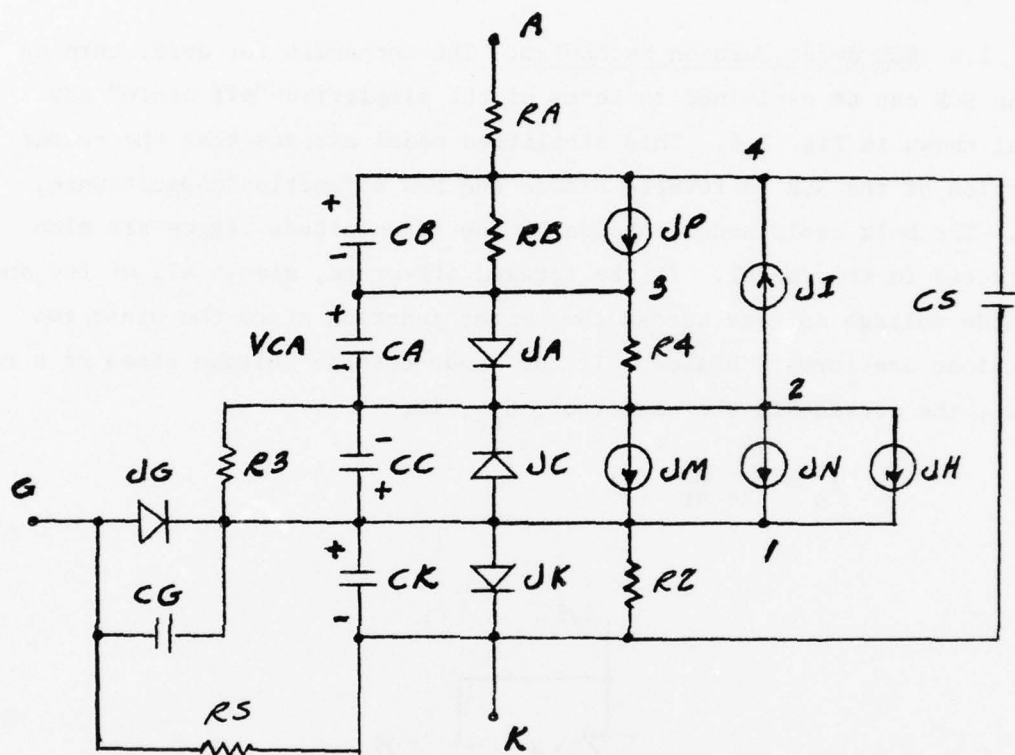 A
RA
4
+
CB
RB
JP
-
3
JI
CS
+
VCA
CA
JA
R4
-
2
-
R3
CC
JC
JM
JN
JH
JG
G
+
1
+
CK
JK
R2
CG
-
RS
K